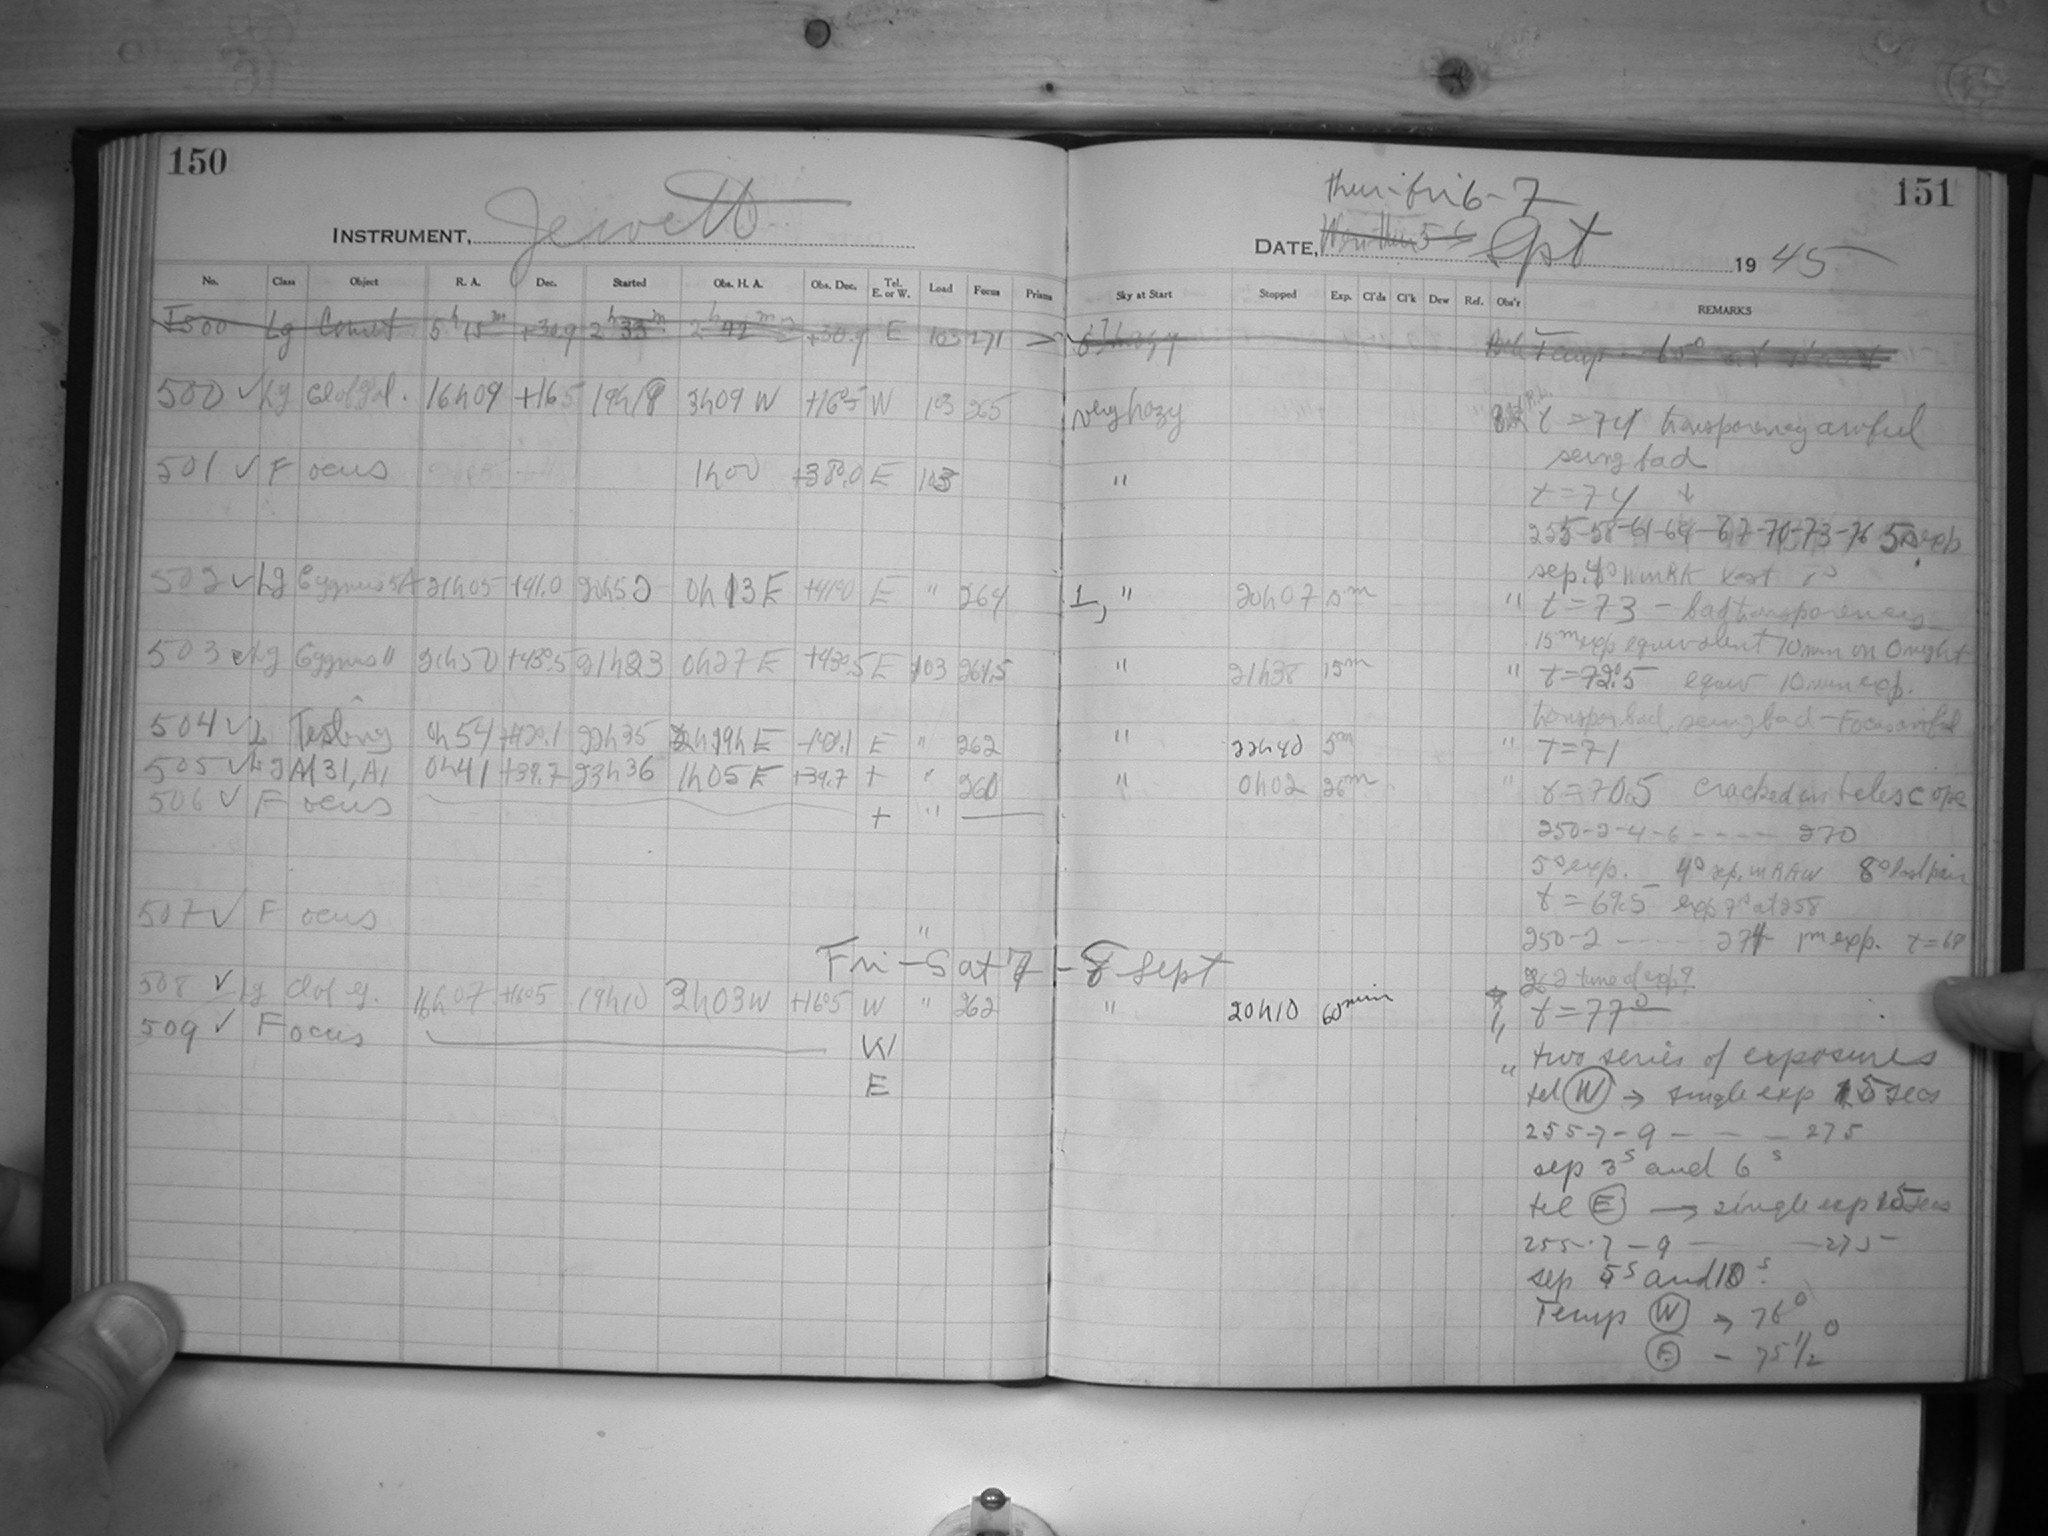 150
INSTRUMENT, Jewett
No. Class Object R. A. Dec. Started Obs. H. A. Obs. Dec. Tel. E. or W. Load Focus Prisms
Lg Comet 5h 15m +30.9 2h 33m +30.9 E 103 271
500 ✓ Lg 16h09 +16.5 19h18 3h09 W +16.5 W 103 265
501 ✓ Focus 1h00 +38.0 E 103
502 ✓ Lg Cygnus 21h05 +41.0 20h52 0h13 E +41.0 E " 264
503 Lg Cygnus 21h50 +43.5 21h23 0h27 E +43.5 E 103 261.5
504 ✓ Testing 0h54 22h35 E E " 262
505 ✓ Lg 0h41 +39.7 23h36 1h05 E +39.7 + " 260
506 ✓ Focus + "
507 ✓ Focus "
Fri - Sat 7 - 8 Sept
508 ✓ Lg 16h07 +16.5 19h10 3h03 W +16.5 W " 262
509 ✓ Focus W
E
151
thur-fri 6-7
DATE, Spt 1945
Sky at Start Stopped Exp. Cl'ds Cl'k Dew Ref. Obs'r REMARKS
Temp
very hazy t = 74 transparency awful
seeing bad
" t = 74 ↓
255-58-61-64-67-70-73-76 5s exp
sep. 4s
1, " " t = 73 - bad transparency
15m exp equivalent 10 min on 0 night
" 21h38 15m " t = 72.5 equiv 10 min exp.
transpar bad, seeing bad - Focus awful
" 22h40 5m " T = 71
" 0h02 26m " t = 70.5 cracked in telescope
250-2-4-6 ----- 270
5s exp. 4s sep. 8s last pair
t = 69.5 exp at 258
250-2 ----- 274 1m exp. t = 68
262 time of exp?
" 20h10 60 min t = 77°
" two series of exposures
tel W → single exp 15 secs
255-7-9 - - - 275
sep 3s and 6s
tel E → single exp 15 secs
255-7-9 ——— 275
sep 5s and 10s.
Temp W → 76°
E - 75 1/2°